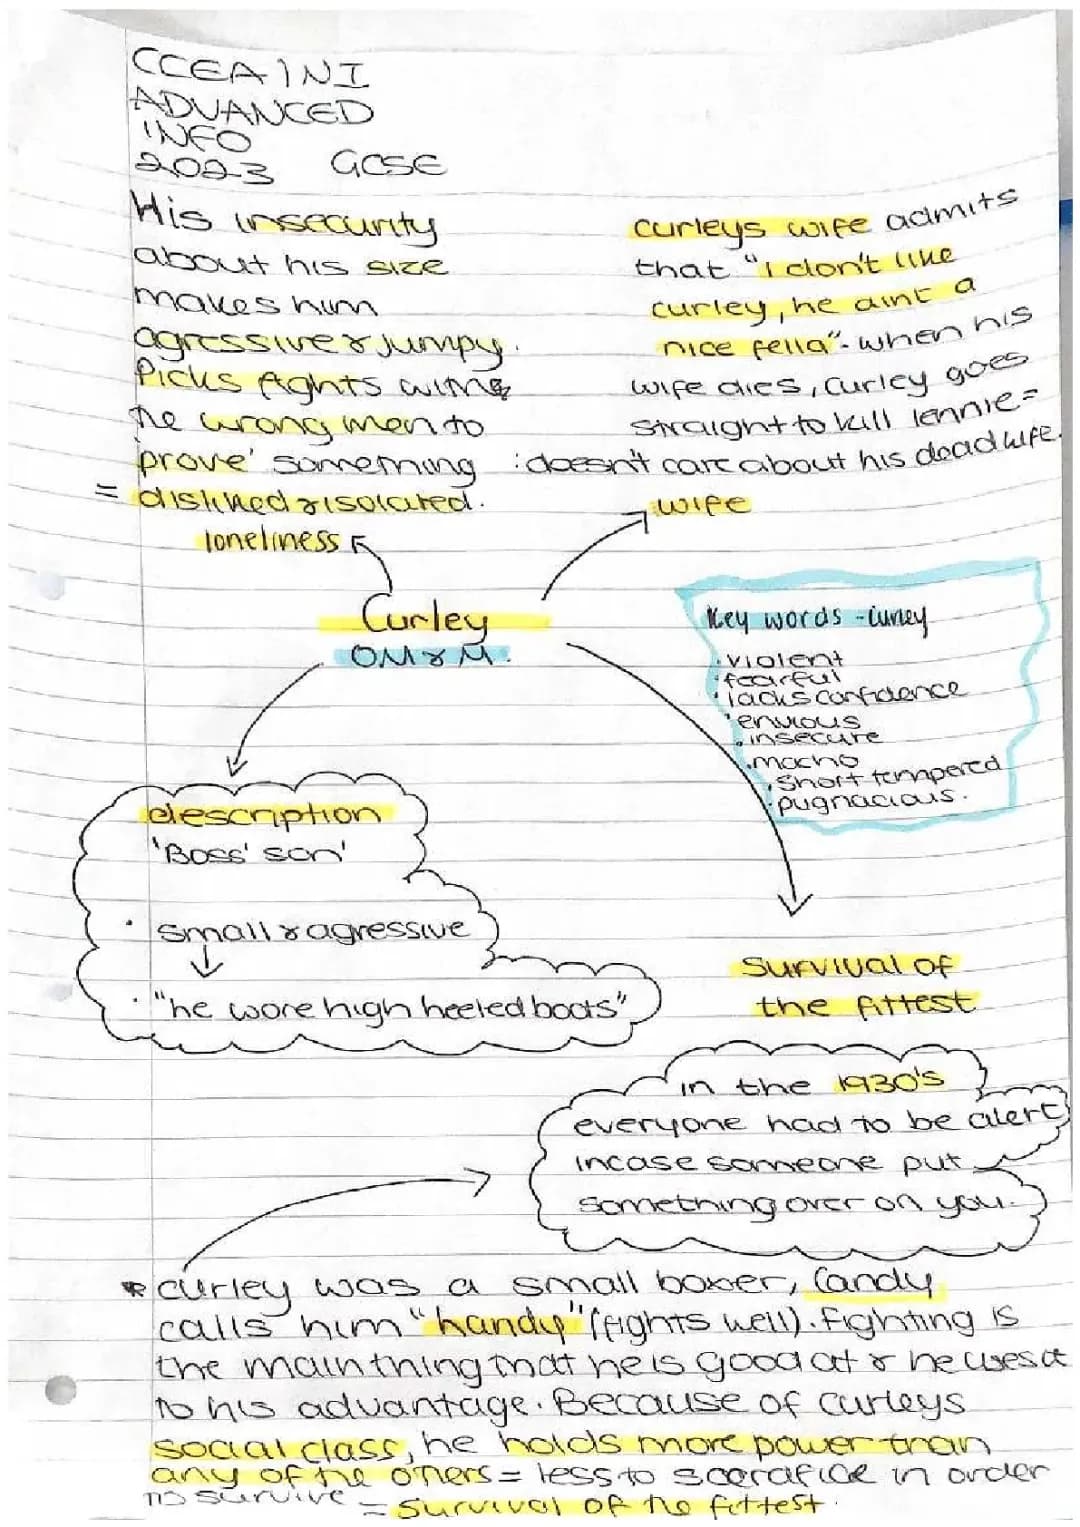 CCEA NI
ADVANCED
INFO
2023 GCSE
His insecurity
about his size
makes him
agressive & jumpy.
Picks fights with
the wrong men to
'prove' something
= disliked & isolated.
loneliness
curleys wife admits
that "I don't like
curley, he aint a
nice fella" - when his
wife dies, curley goes
straight to kill lennie =
: doesn't care about his dead wife.
wife
Curley
OM&M.
Key words - Curley
· violent
· fearful
· lacks confidence
· envious
· insecure
· macho
· short tempered
· pugnacious.
description
'Boss' son'
· small & agressive
· "he wore high heeled boots"
Survival of
the fittest
in the 1930's
everyone had to be alert
incase someone put
something over on you.
* curley was a small boxer, Candy
calls him "handy" (fights well). Fighting is
the main thing that he is good at & he uses it
to his advantage. Because of curleys
social class, he holds more power than
any of the others = less to in order
to survive = survival of the fittest.